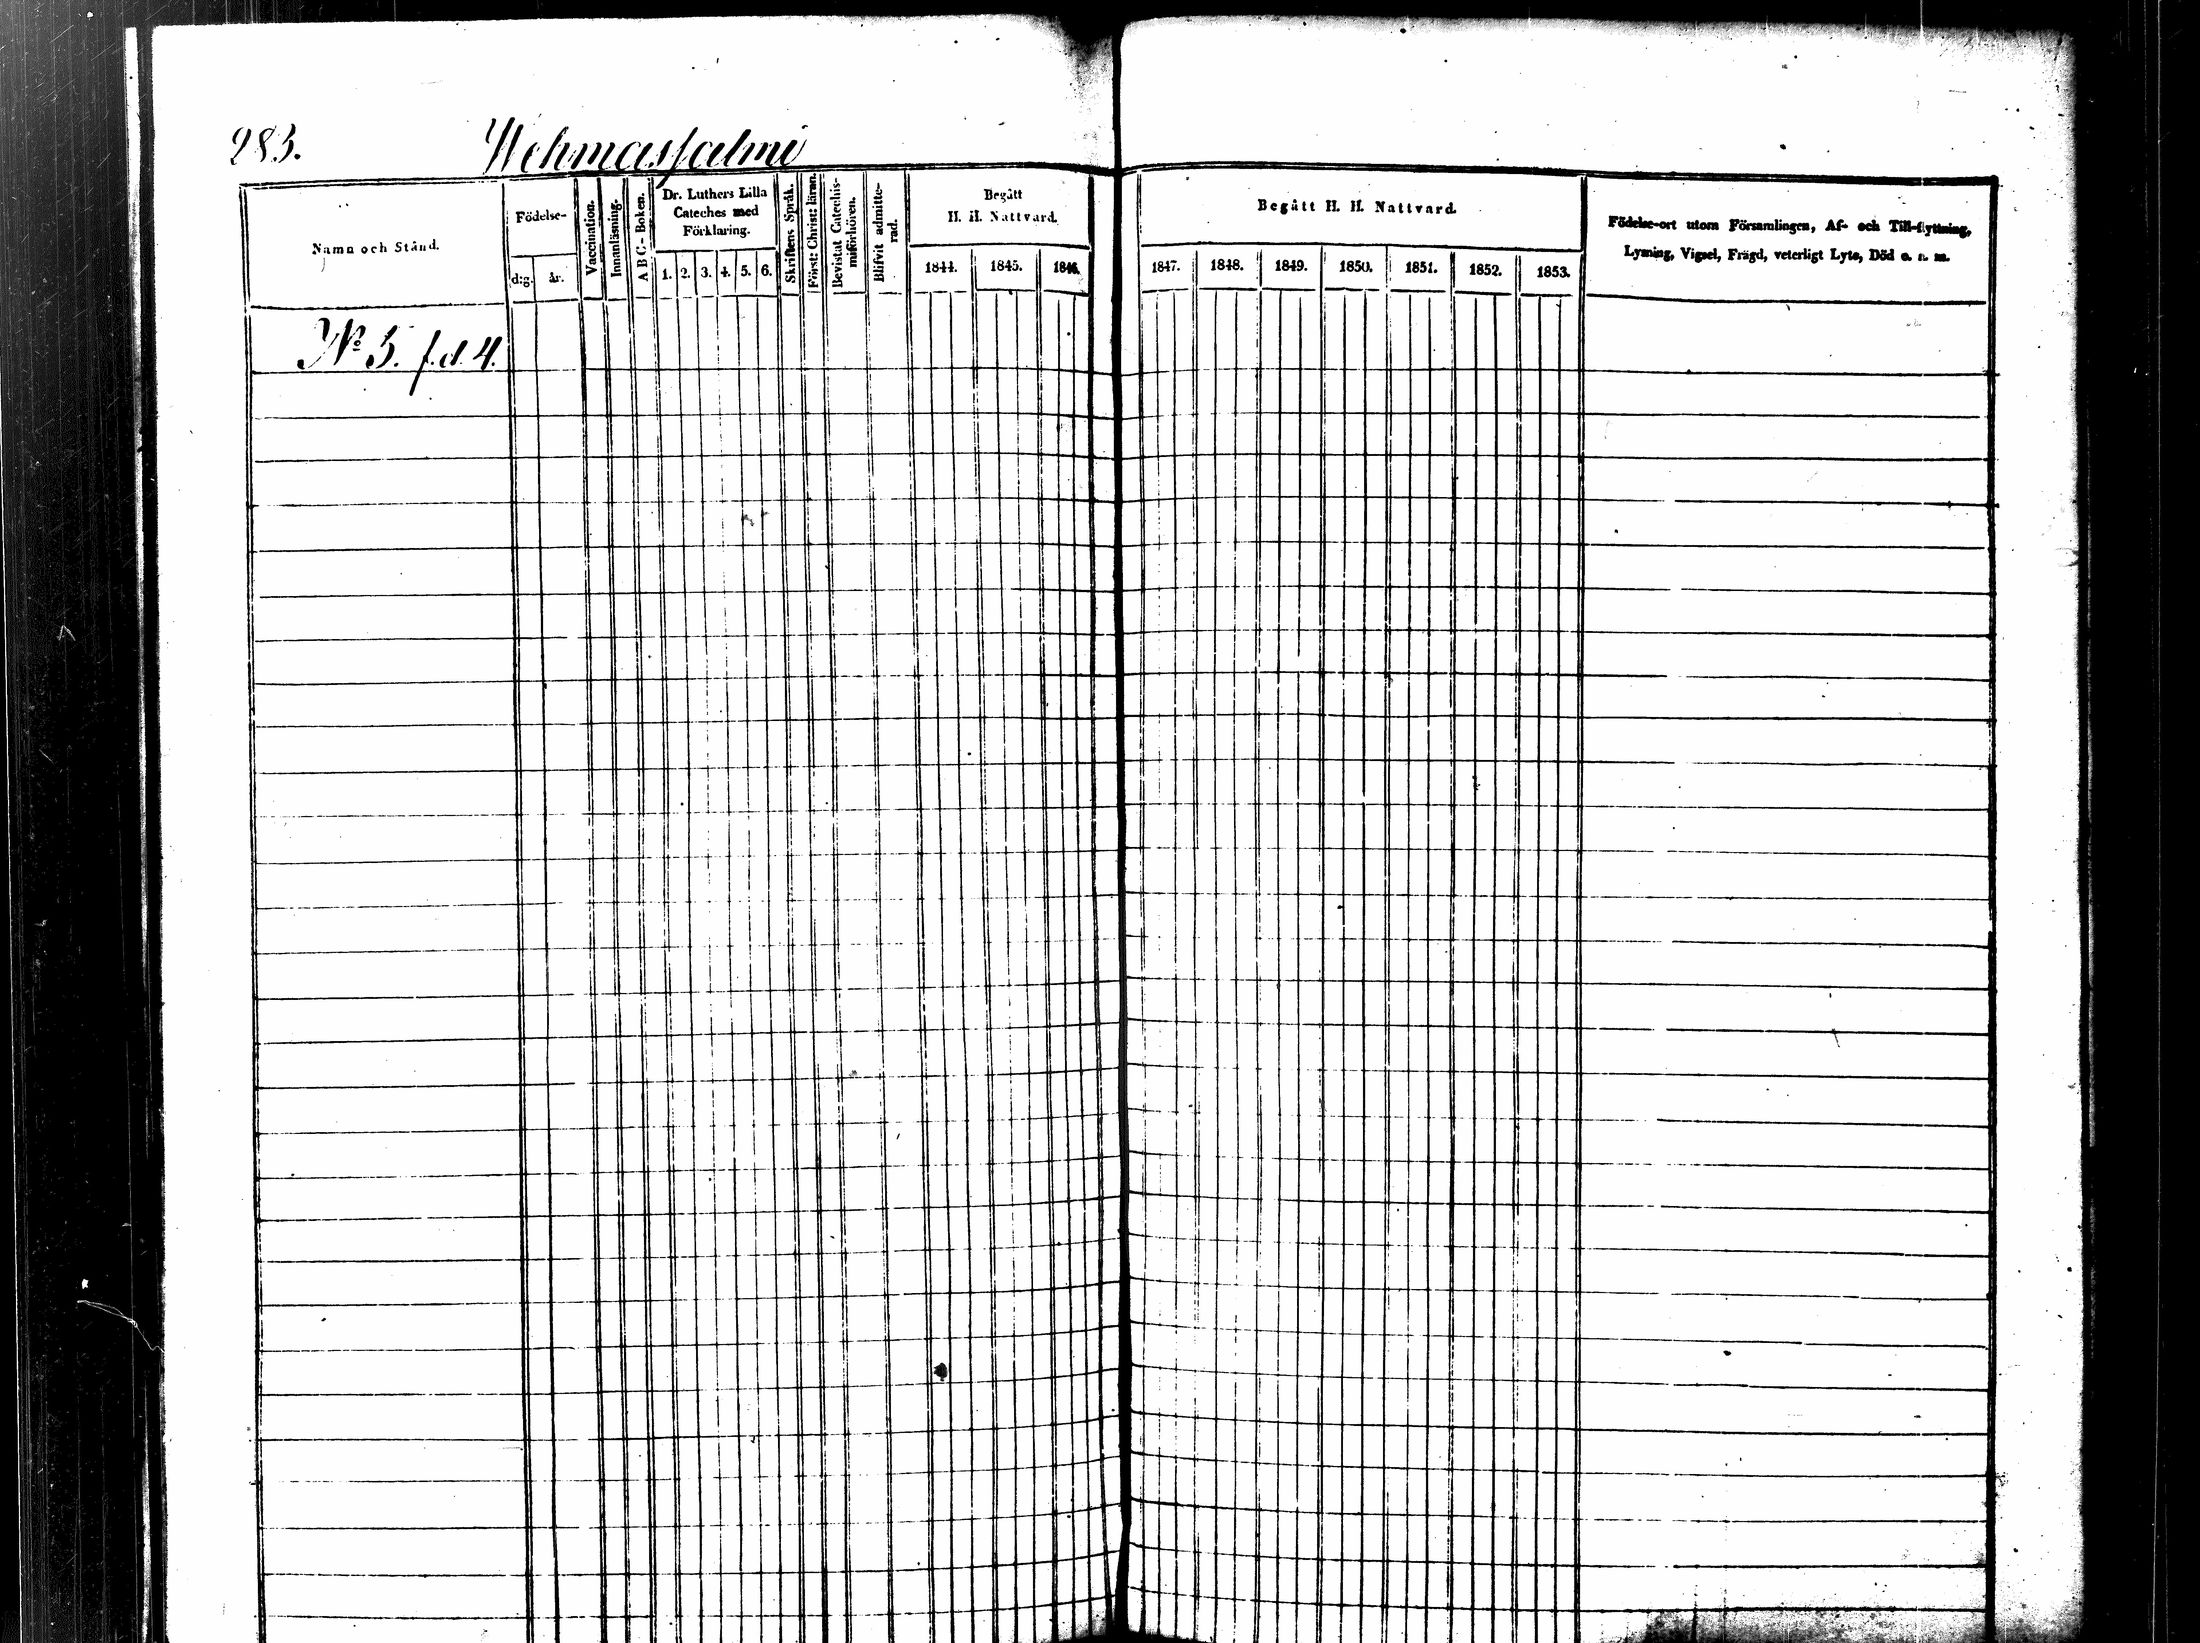 283. Wehmassalmi
Namn och Stånd.
Födelse-
d:g. år.
Vaccination.
Innanläsning.
A B C - Boken.
Dr. Luthers Lilla
Cateches med
Förklaring.
1. 2. 3. 4. 5. 6.
Skriftens Språk.
Först: Christ: läran.
Bevistat Catechis-
miförhören.
Blifvit admitte-
rad.
Begått
H. H. Nattvard.
1844. 1845. 1846.
Begått H. H. Nattvard.
1847. 1848. 1849. 1850. 1851. 1852. 1853.
Födelse-ort utom Församlingen, Af- och Till-flyttning,
Lysning, Vigsel, Frägd, veterligt Lyte, Död o. s. m.
No 5. f.d. 4.